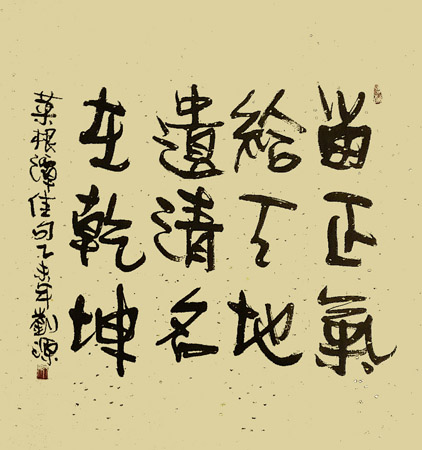 留正氣
給天地
遺清名
在乾坤
菜根譚佳句乙未年劉源